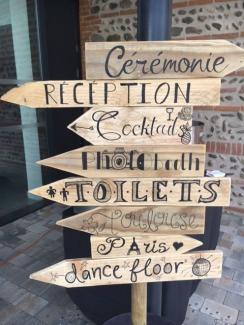 Cérémonie
RÉCEPTION
Cocktails
Photobooth
TOILETS
Toulouse
PARIS
dance floor